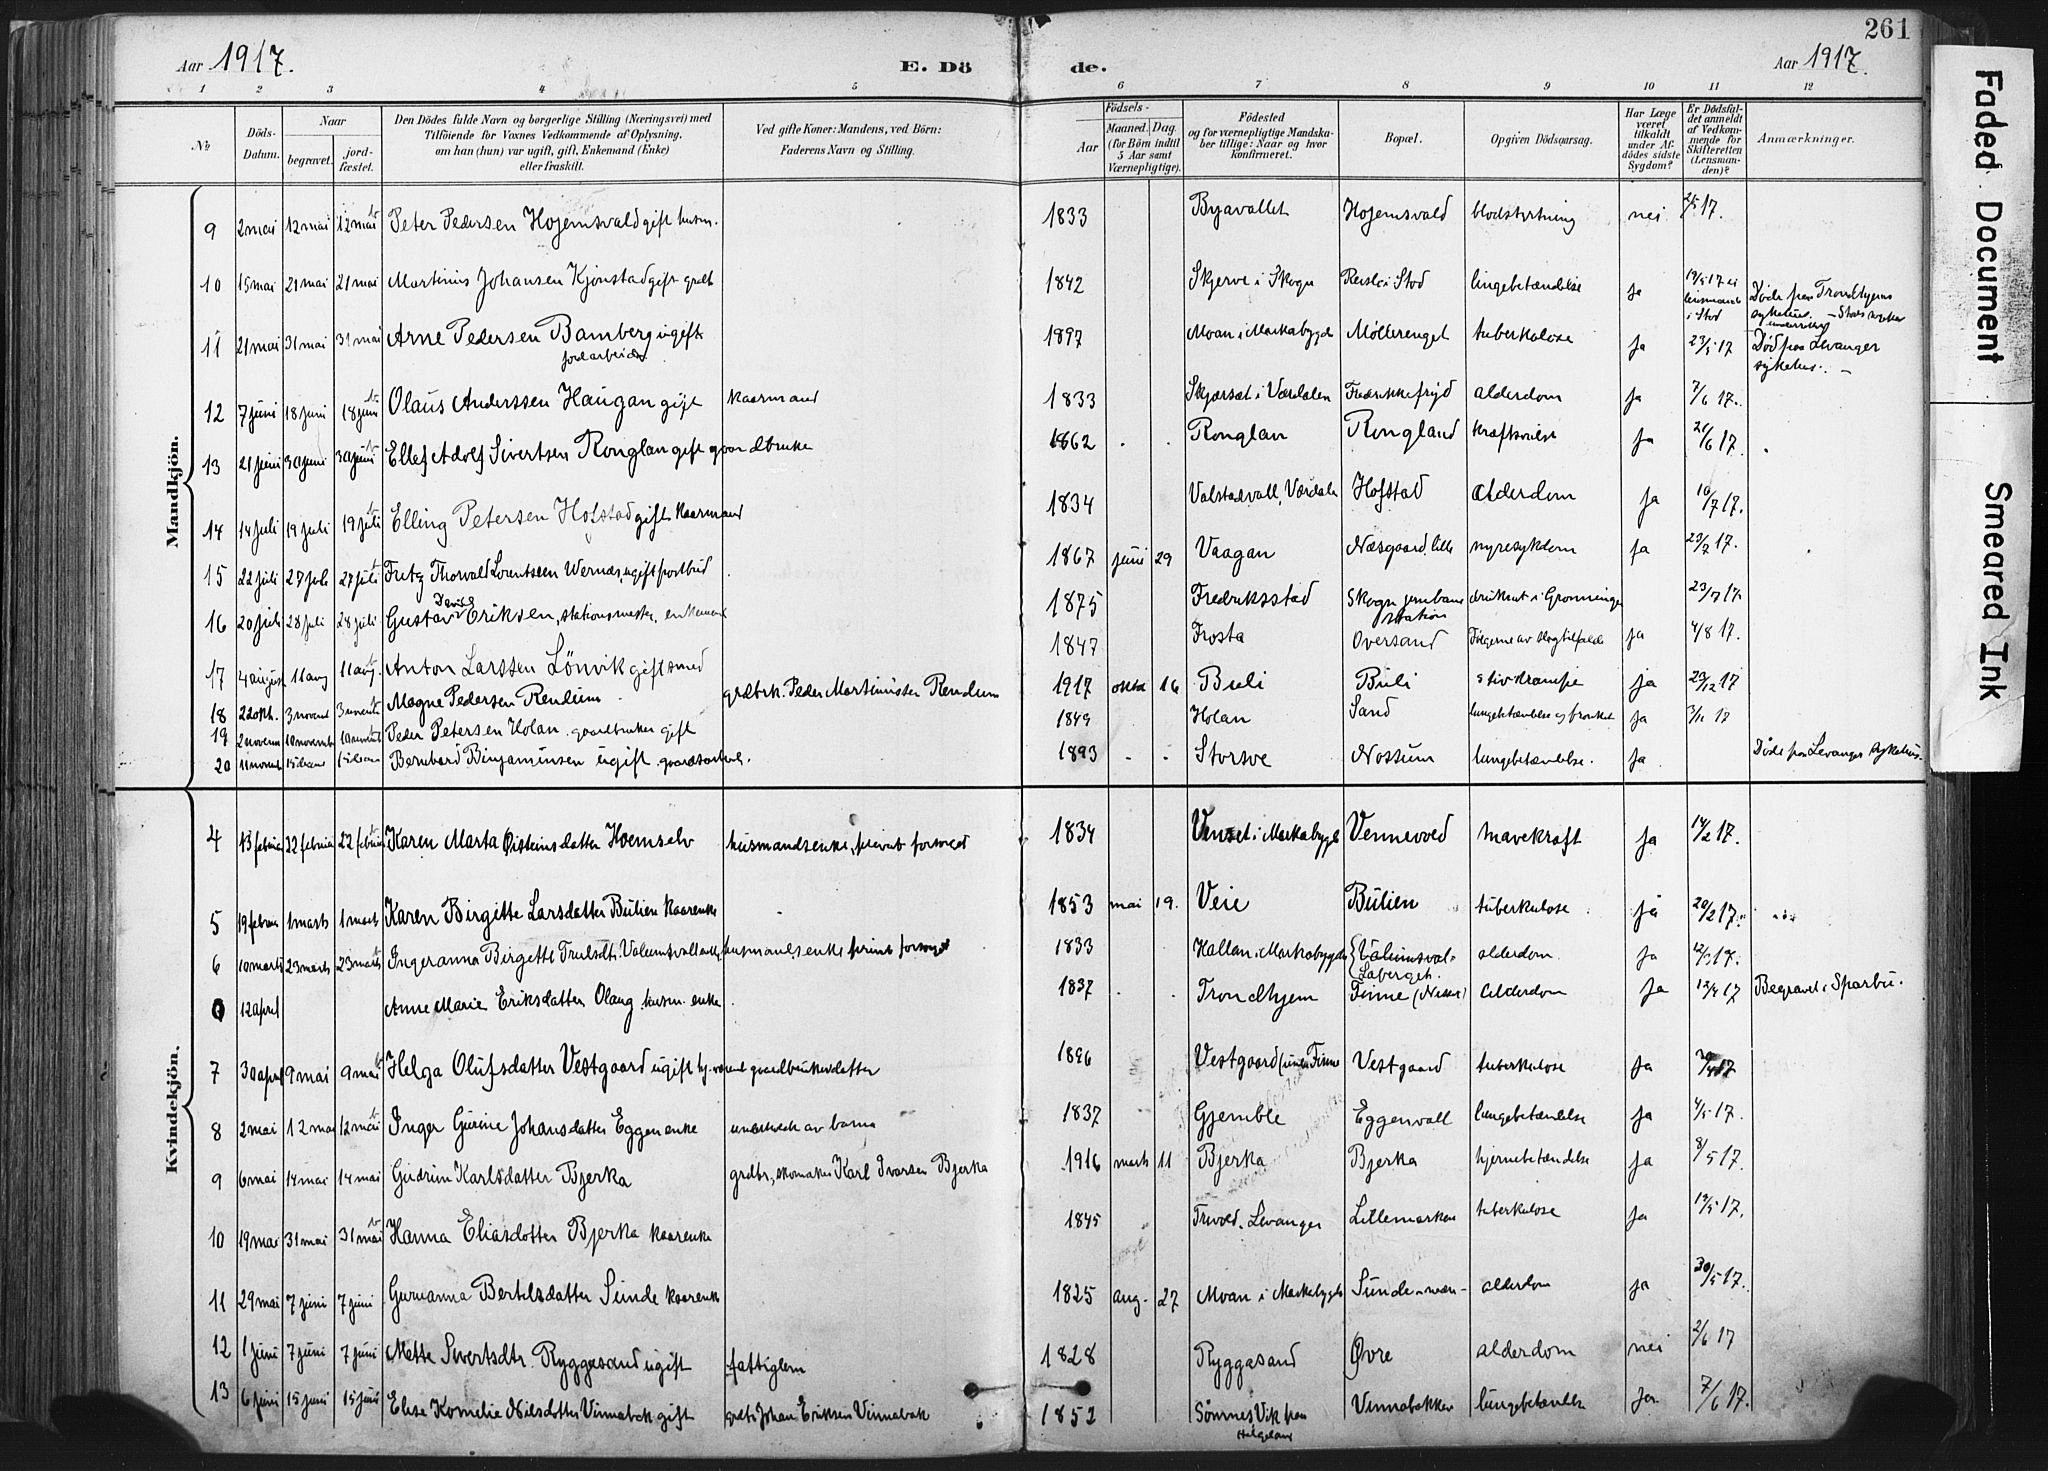 261
Aar 1917.
E. Döde.
Aar 1917.
1 2 3 4 5 6 7 8 9 10 11 12
№
Döds-Datum.
Naar
begravet.
jord-fæstet.
Den Dödes fulde Navn og borgerlige Stilling (Næringsvei) med
Tilföiende for Voxnes Vedkommende af Oplysning,
om han (hun) var ugift, gift, Enkemand (Enke)
eller fraskilt.
Ved gifte Koner: Mandens, ved Börn:
Faderens Navn og Stilling.
Födsels-
Aar
Maaned. Dag.
(for Börn indtil
5 Aar samt
Værnepligtige).
Födested
og for værnepligtige Mandska-
ber tillige: Naar og hvor
konfirmeret.
Bopæl.
Opgiven Dödsaarsag.
Har Læge
været
tilkaldt
under Af-
dödes sidste
Sygdom?
Er Dödsfal-
det anmeldt
af Vedkom-
mende for
Skifteretten
(Lensman-
den)?
Anmærkninger.
Mandkjön.
9 2 mai 12 mai 12 mai Peter Pedersen Hojemsvald gift husm. 1833 Byavallet Hojemsvald blodstyrtning nei 2/5 17.
10 15 mai 21 mai 21 mai Martinus Johansen Kjönstad gift grdbr 1842 Skjerve i Skogn i Stod lungebetændelse ja 19/5 17 Döde paa Trondhjems sykehus.
11 21 mai 31 mai 31 mai Arne Pedersen Bamberg ugift jordarbeider 1897 Moan i Markabygda Möllerenget tuberkulose ja 23/5 17 Död paa Levanger sykehus.
12 7 juni 18 juni 18 juni Olaus Anderssen Haugan gift kaarmand 1833 Skjærset i Værdalen Fredrikkefryd alderdom ja 7/6 17.
13 21 juni 30 juni 30 juni Ellef Adolf Sivertsen Ronglan gift gaardbruker 1862 Ronglan Rongland kræftsvulst ja 21/6 17.
14 14 juli 19 juli 19 juli Elling Petersen Hofstad gift kaarmand 1834 Valstadvall, Værdalen Hofstad alderdom ja 10/7 17.
15 22 juli 27 juli 27 juli Fritz Thorvald Lorentsen Wernæs, ugift postbud 1867 juni 29 Vaagan Næsgaard, lille nyresykdom ja 23/7 17.
16 20 juli 28 juli 28 juli Gustav David Eriksen, stationsmester, enkemand 1875 Fredriksstad Skogn jernbanestation druknet i Gronningen 23/7 17.
17 4 august 11 aug 11 aug. Anton Larssen Lönvik gift smed 1847 Frosta Oversand Fölgerne av slagtilfælde ja 4/8 17.
18 22 okt. 3 novemb 3 novemb Magne Pedersen Rendum grdbrk. Peder Martinussen Rendum 1917 oktb 16 Buli Buli stivkrampe ja 29/12 17
19 2 novemb 10 novemb 10 novemb Peder Petersen Holan gaardbruker gift 1849 Holan Sand lungebetændelse og bronkit ja 3/11 17
20 11 novemb Bernhard Binjaminsen ugift gaardsarbeid. 1893 Storsve Nossum lungebetændelse. ja. Döde paa Levanger sykehus.
Kvindekjön.
4 13 februar 22 februar 22 februar Karen Marta Øisteinsdatter Hoemselv husmandsenke, privat forsörget 1834 Venset i Markabygda Vennevoed mavekræft ja 14/2 17.
5 19 februar 1 marts 1 marts Karen Birgitte Larsdatter Bulien kaarenke 1853 mai 19. Veie Bulien tuberkulose ja 20/2 17.
6 10 marts 23 marts 23 marts Ingeranna Birgette Trulsdtr. Valumsvall enke husmandsenke privat forsörget 1833 Hallan i Markabygda Valumsval Laberget. alderdom ja 12/3 17.
0 12 april Anne Marie Eriksdatter Olaug husm. enke 1837 Trondhjem Finne (Nesset) alderdom ja 12/4 17 Begravet i Sparbu.
7 30 april 9 mai 9 mai Helga Olufsdatter Vestgaard ugift hj.værend gaardbrukerdatter 1896 Vestgaard under Finne Vestgaard tuberkulose ja 30/4 17
8 2 mai 12 mai 12 mai Inger Gurine Johansdatter Eggen enke underholdt av barna 1837 Gjemble Eggenvall lungebetændelse ja 4/5 17.
9 6 mai 14 mai 14 mai Gudrun Karlsdatter Bjerka grdbr., skomaker Karl Ivarsen Bjerka 1916 marts 11 Bjerka Bjerka hjernebetændelse ja 8/5 17.
10 19 mai 31 mai 31 mai Hanna Eliasdotter Bjerka kaarenke 1845 Trivold. Levanger Lillemarken tuberkulose ja 19/5 17.
11 29 mai 7 juni 7 juni Gurianna Bertelsdatter Sunde kaarenke 1825 aug. 27 Moan i Markabygda Sunde alderdom ja 30/5 17.
12 1 juni 7 juni 7 juni Mette Sivertsdtr. Ryggasand ugift fattiglem 1828 Ryggasand Øvre alderdom nei 2/6 17
13 6 juni 15 juni 15 juni Elise Kornelie Nilsdotter Vinnabak gift grdbr Johan Eriksen Vinnabak 1852 Sömnes Vik paa Helgeland Vinnabakken lungebetændelse ja. 7/6 17.
Faded Document
Smeared Ink